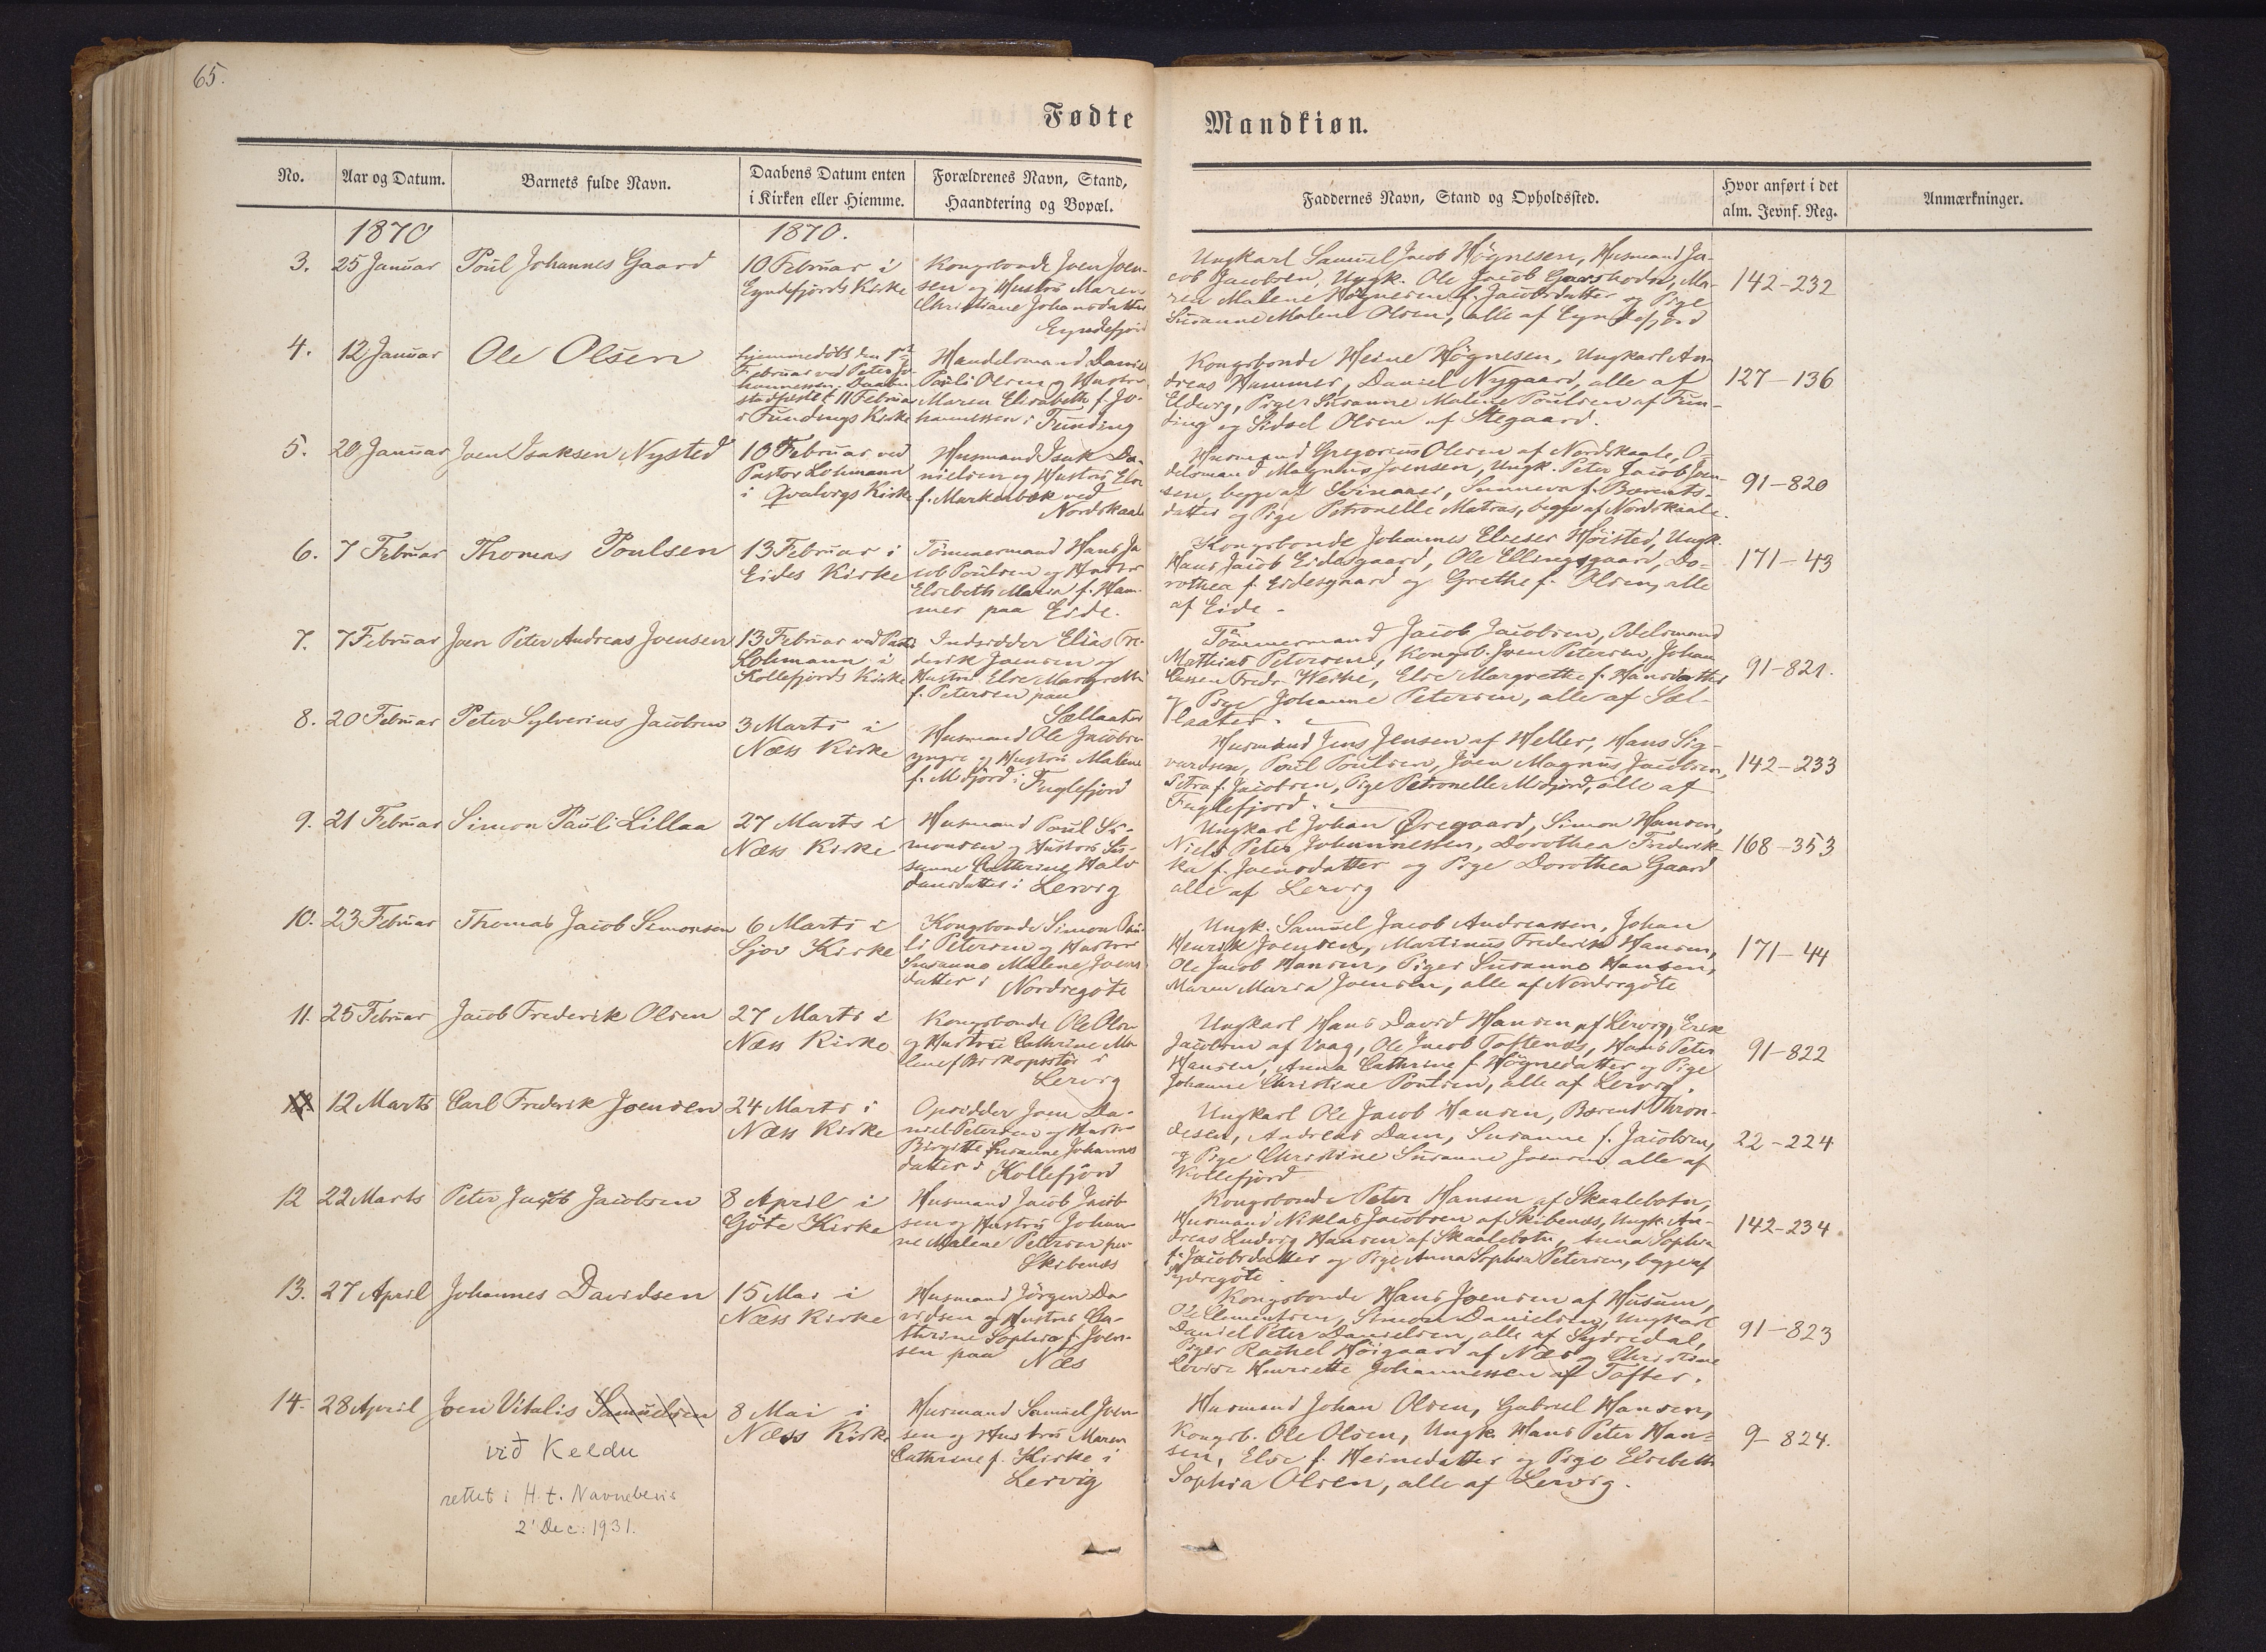 65.
Fødte
Mandkiøn.
No.
Aar og Datum.
Barnets fulde Navn.
Daabens Datum enten
i Kirken eller Hiemme.
Forældrenes Navn, Stand,
Haandtering og Bopæl.
Faddernes Navn, Stand og Opholdssted.
Hvor anført i det
alm. Jevnf. Reg.
Anmærkninger.
1870
1870.
3.
25 Januar
Poul Johannes Gaard
10 Februar i
Eyndefjords Kirke
Kongsbonde Joen Joen-
sen og Hustru Maren
Christiane Johansdatter
Eyndefjord
Ungkarl Samuel Jacob Högnesen, Husmand Ja-
cob Jacobsen, Ungk. Ole Jacob Garshodn, Ma-
ren Malene Högnesen f. Jacobsdatter og Pige
Susanne Malene Olsen, alle af Eyndefjord
142-232
4.
12 Januar
Ole Olsen
hjemmedöbt den 1st
Februar ved Peter Jo-
hannessen. Daaben
stadfæstet 11 Februar
i Fundings Kirke
Handelsmand Daniel
Pauli Olsen og Hustru
Maren Elisabeth f. Jo-
hannessen i Funding
Kongsbonde Heine Högnesen, Ungkarl An-
dreas Hammer, Daniel Nygaard, alle af
Eldevig, Piger Susanne Malene Poulsen af Fun-
ding og Sidsel Olsen af Stegaard.
127-136
5.
20 Januar
Joen Isaksen Nysted
10 Februar ved
Pastor Lohmann
i Qvalvigs Kirke
Husmand Isak Da-
nielsen og Hustru Else
f. Markenbæk ved
Nordskaale
Husmand Gregorius Olesen af Nordskaale, O-
delsmand Magnus Joensen, Ungk. Peter Jacob Joen-
sen, begge af Svinaaer, Sunneva f. Barents-
datter og Pige Petronelle Matras, begge af Nordskaale.
91-820
6.
7 Februar
Thomas Poulsen
13 Februar i
Eides Kirke
Tömmermand Hans Ja
cob Poulsen og Hustru
Elsebeth Maria f. Ham-
mer paa Eide.
Kongsbonde Johannes Elieser Höisted, Ungk.
Hans Jacob Eidesgaard, Ole Ellingsgaard, Do-
rothea f. Eidesgaard og Grethe f. Olsen, alle
af Eide.
171-43
7.
7 Februar
Joen Peter Andreas Joensen
13 Februar ved Pastor
Lohmann i
Kollefjords Kirke
Indsidder Elias Fre-
derik Joensen og
Hustru Else Margrethe
f. Petersen paa
Sællaater
Tömmermand Jacob Jacobsen, Odelsmand
Mathias Petersen, Kongsb. Joen Petersen, Johan
Fredr. Weihe, Else Margrethe f. Hansdatter
og Pige Johanne Petersen, alle af Sæl-
laater.
91-821.
8.
20 Februar
Peter Sylverius Jacobsen
3 Marts i
Næss Kirke
Husmand Ole Jacobsen
yngre og Hustru Malene
f. Midjord i Fuglefjord
Husmand Jens Jensen af Heller, Hans Sig-
vardsen, Poul Poulsen, Joen Magnus Jacobsen,
Petra f. Jacobsen, Pige Petronelle Midjord, alle af
Fuglefjord.
142-233
9.
21 Februar
Simon Pauli Lillaa
27 Marts i
Næss Kirke
Husmand Poul Si-
monsen og Hustru Su-
sanne Cathrine Halv
dansdatter i Lervig
Ungkarl Johan Øregaard, Simon Hansen,
Niels Peter Johannessen, Dorothea Frederik-
ka f. Joensdatter og Pige Dorothea Gaard
alle af Lervig
168-353
10.
23 Februar
Thomas Jacob Simonsen
6 Marts i
Sjov Kirke
Kongsbonde Simon Pau-
li Petersen og Hustru
Susanne Malene Joens-
datter i Nordregöte
Ungk. Samuel Jacob Andreassen, Johan
Henrik Joensen, Martinus Frederik Hansen,
Ole Jacob Hansen, Piger Susanne Hansen,
Maren Maria Joensen, alle af Nordregöte
171-44
11.
25 Februar
Jacob Frederik Olsen
27 Marts i
Næss Kirke
Kongsbonde Ole Olsen
og Hustru Cathrine Ma
lene f. Biskopsstöe i
Lervig
Ungkarl Hans David Hansen af Lervig, Erik
Jacobsen af Vaag, Ole Jacob Toftenæs, Hans Peter
Hansen, Anna Cathrine f. Högnedatter og Pige
Johanne Christine Poulsen, alle af Lervig.
91-822
12 Marts
Carl Frederik Joensen
24 Marts i
Næss Kirke
Opsidder Joen Da-
niel Petersen og Hustru
Birgitte Susanne Johannes
datter i Kollefjord
Ungkarl Ole Jacob Hansen, Barent Thron-
desen, Andreas Dam, Susanne f. Jacobsen,
og Pige Christine Susanne Joensen alle af
Kollefjord
22-224
12
22 Marts
Peter Jacob Jacobsen
8 April i
Göte Kirke
Husmand Jacob Jacob
sen og Hustru Johan-
ne Malene Petersen paa
Skibenæs
Kongsbonde Peter Hansen af Skaalebotn,
Husmand Niklas Jacobsen af Skibenæs, Ungk. An-
dreas Ludvig Hansen af Skaalebotn, Anna Sophia
f. Jacobsdatter og Pige Anna Sophia Petersen, begge af
Sydregöte.
142-234
13.
27 April
Johannes Davidsen
15 Mai i
Næss Kirke
Husmand Jörgen Da
vidsen og Hustru Ca-
thrine Sophia f. Joen-
sen paa Næs
Kongsbonde Hans Joensen af Husum,
Ole Clementsen, Simon Danielsen, Ungkarl
Daniel Peter Danielsen, alle af Sydredal,
Piger Rachel Höigaard af Næs og Christine
Lovise Henriette Johannessen af Tofter.
91-823
14.
28 April
Joen Vitalis Samuelsen
við Keldu
rettet i H. t. Navnebevis
2' Dec. 1931.
8 Mai i
Næss Kirke
Husmand Samuel Joen
sen og Hustru Maren
Cathrine f. Kirke i
Lervig
Husmand Johan Olsen, Gabriel Hansen,
Kongsb. Ole Olsen, Ungk. Hans Peter Han-
sen, Else f. Heinedatter og Pige Elsebeth
Sophia Olsen, alle af Lervig.
9-824.